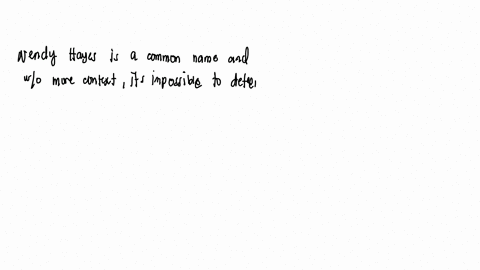 Wendy Hayes is a common name and
w/o more context, it's impossible to deter